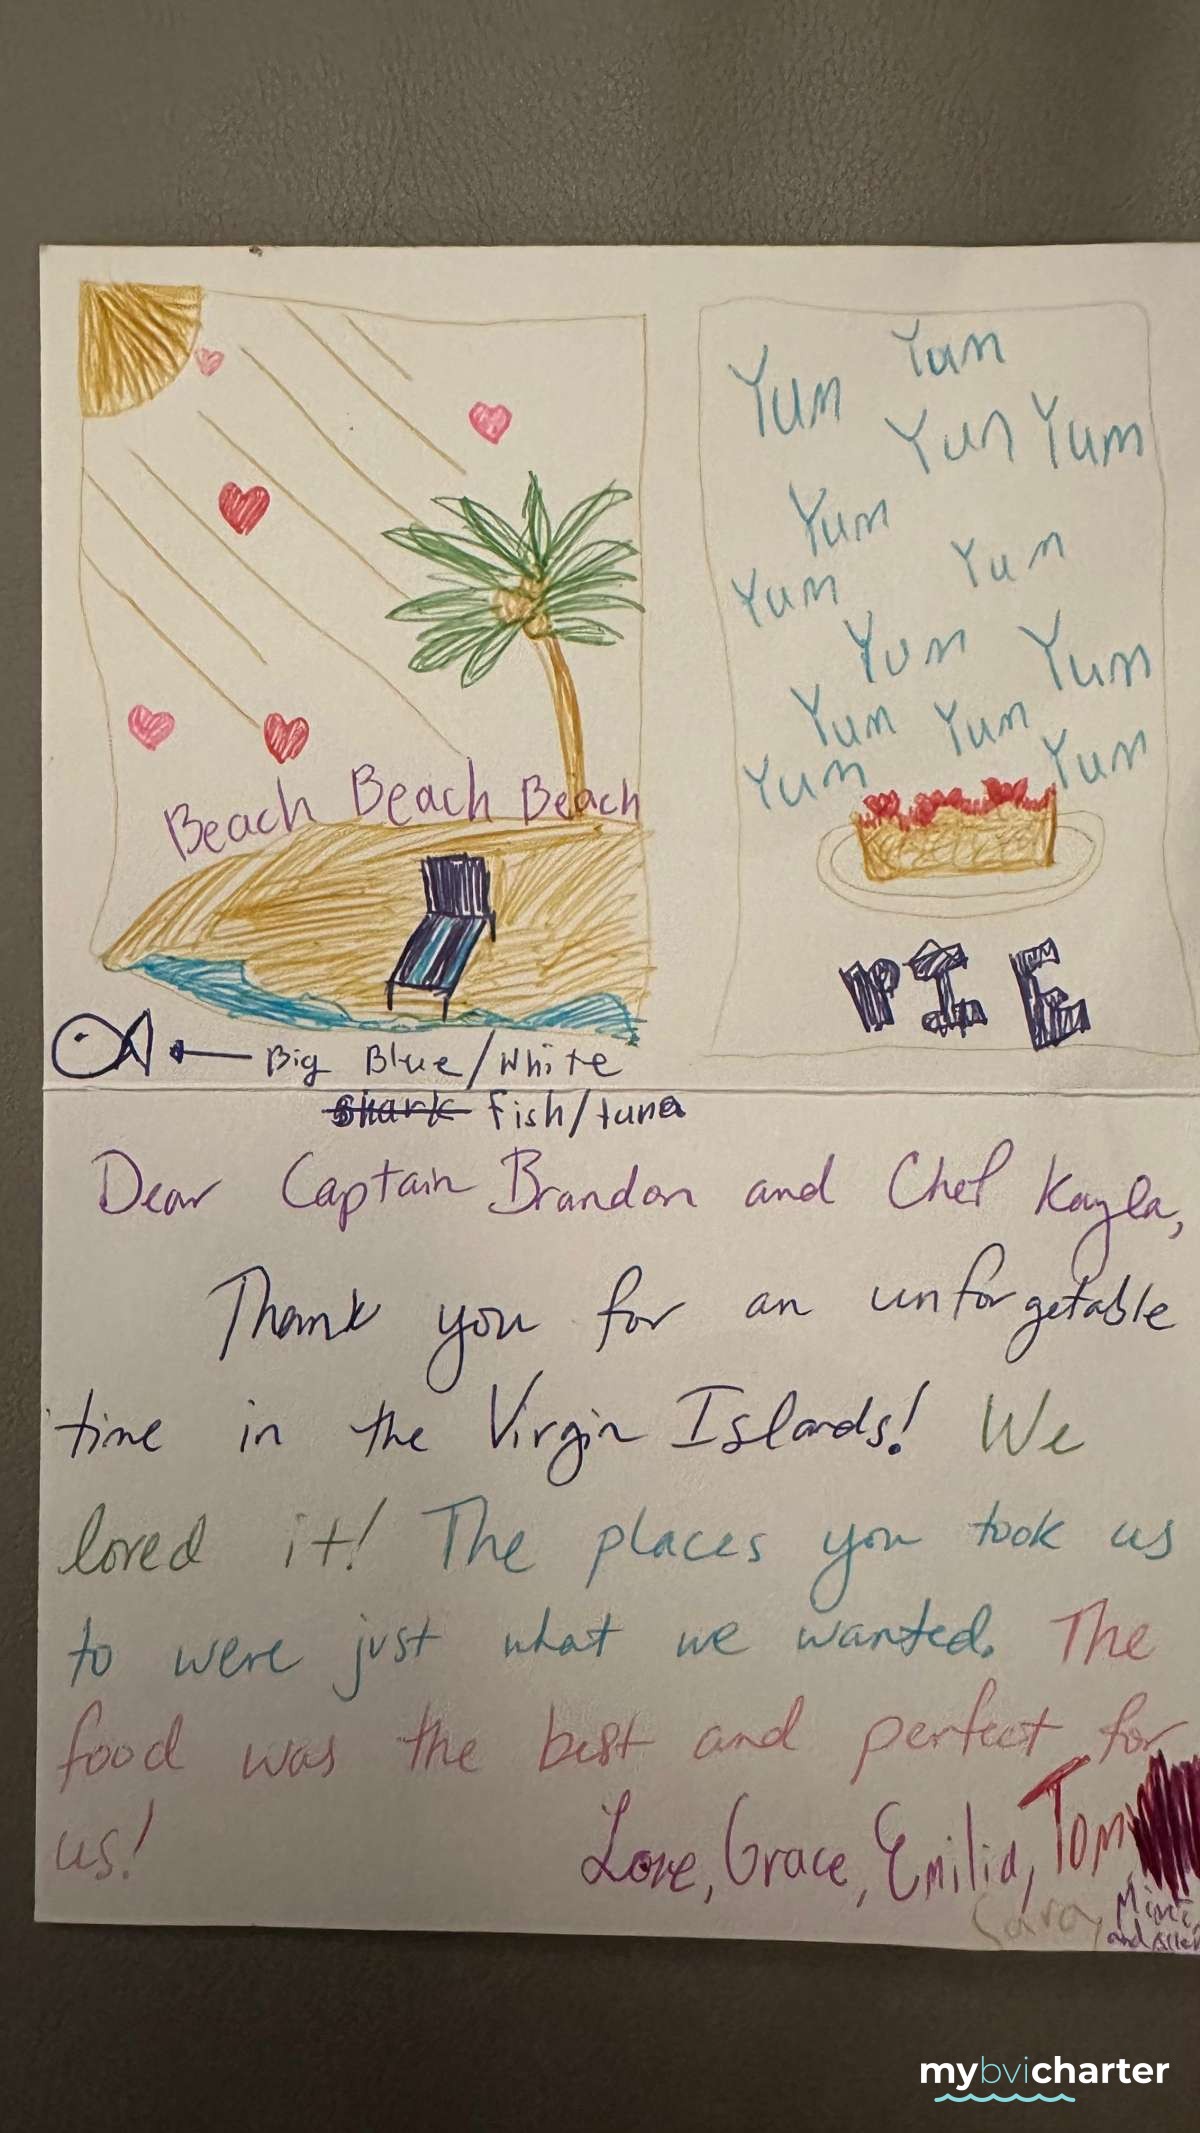 Yum Yum
Yum Yum
Yum
Yum Yum
Yum Yum
Yum Yum
Yum Yum
Beach Beach Beach
PIE
Big Blue/White
shark fish/tuna
Dear Captain Brandon and Chef Kayla,
Thank you for an unforgetable
time in the Virgin Islands! We
loved it! The places you took us
to were just what we wanted. The
food was the best and perfect for
us!
Love, Grace, Emilia, Tom,
Sara,
and
mybvicharter